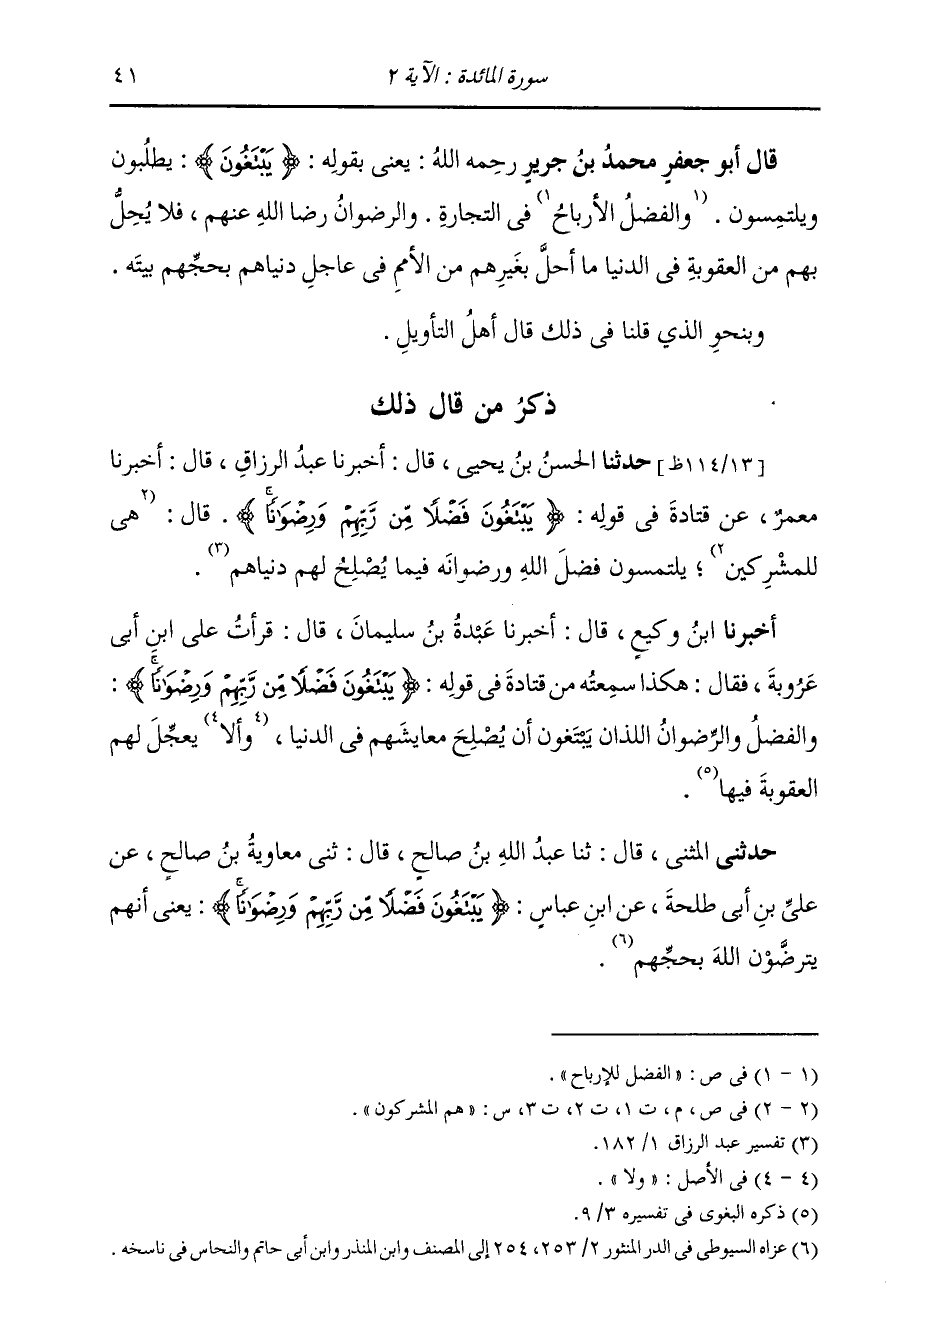 سورة المائدة : الآية ٢ ٤١
قال أبو جعفرٍ محمدُ بنُ جريرٍ رحِمه اللهُ : يعنى بقولِه : ﴿ يَبْتَغُونَ ﴾ : يطلُبون
ويلتمِسون . (١والفضلُ الأرباحُ١) فى التجارةِ . والرضوانُ رضا اللهِ عنهم ، فلا يُحِلُّ
بهم من العقوبةِ فى الدنيا ما أحلَّ بغَيرِهم من الأممِ فى عاجلِ دنياهم بحجِّهم بيتَه .
وبنحوِ الذي قلنا فى ذلك قال أهلُ التأويلِ .
ذكرُ من قال ذلك
[١١٤/١٣ظ] حدثنا الحسنُ بنُ يحيى ، قال : أخبرنا عبدُ الرزاقِ ، قال : أخبرنا
معمرٌ ، عن قتادةَ فى قولِه : ﴿ يَبْتَغُونَ فَضْلًا مِّن رَّبِّهِمْ وَرِضْوَانًا ﴾ . قال : (٢هى
للمشْرِكين٢) ؛ يلتمسون فضلَ اللهِ ورضوانَه فيما يُصْلِحُ لهم دنياهم(٣) .
أخبرنا ابنُ وكيعٍ ، قال : أخبرنا عَبْدةُ بنُ سليمانَ ، قال : قرأتُ على ابنِ أبى
عَرُوبةَ ، فقال : هكذا سمِعتُه من قتادةَ فى قولِه : ﴿ يَبْتَغُونَ فَضْلًا مِّن رَّبِّهِمْ وَرِضْوَانًا ﴾ :
والفضلُ والرِّضوانُ اللذان يَبْتَغون أن يُصْلِحَ معايشَهم فى الدنيا ، (٤وألا٤) يعجِّلَ لهم
العقوبةَ فيها(٥) .
حدثنى المثنى ، قال : ثنا عبدُ اللهِ بنُ صالحٍ ، قال : ثنى معاويةُ بنُ صالحٍ ، عن
علىِّ بنِ أبى طلحةَ ، عن ابنِ عباسٍ : ﴿ يَبْتَغُونَ فَضْلًا مِّن رَّبِّهِمْ وَرِضْوَانًا ﴾ : يعنى أنهم
يترضَّوْن اللهَ بحجِّهم(٦) .
(١ - ١) فى ص : « الفضل للإرباح » .
(٢ - ٢) فى ص ، م ، ت ١، ت ٢، ت ٣، س : « هم المشركون » .
(٣) تفسير عبد الرزاق ١/ ١٨٢.
(٤ - ٤) فى الأصل : « ولا » .
(٥) ذكره البغوى فى تفسيره ٣/ ٩.
(٦) عزاه السيوطى فى الدر المنثور ٢/ ٢٥٣، ٢٥٤ إلى المصنف وابن المنذر وابن أبى حاتم والنحاس فى ناسخه .